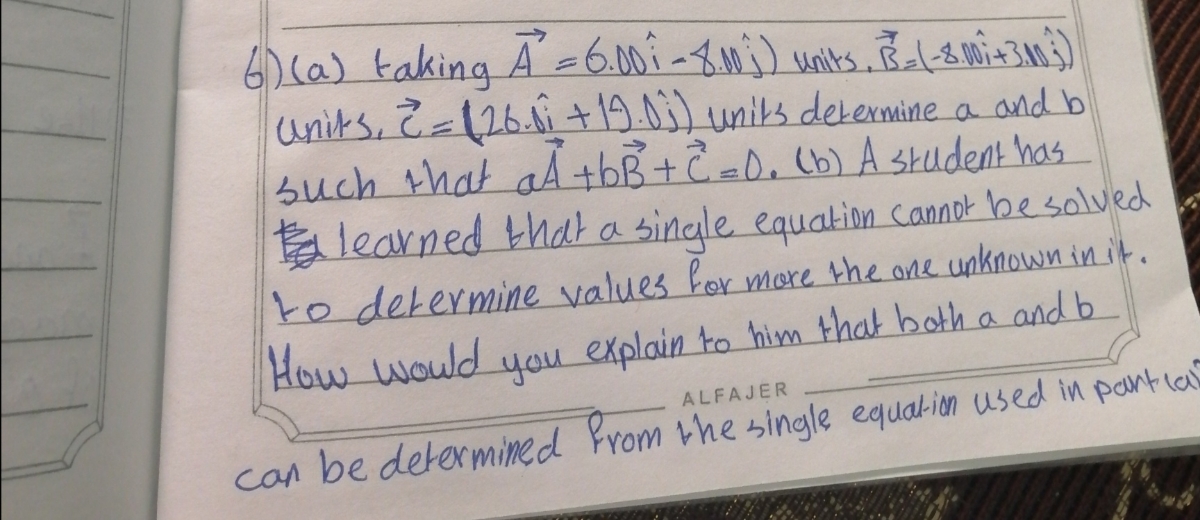 6)(a) taking A⃗ = 6.00î - 8.00ĵ) units, B⃗ = (-8.00î+3.00ĵ)
units, C⃗ = (26.0î + 19.0ĵ) units determine a and b
such that aA⃗ + bB⃗ + C⃗ = 0. (b) A student has
learned that a single equation cannot be solved
to determine values for more the one unknown in it.
How would you explain to him that both a and b
ALFAJER
can be determined from the single equation used in part (a)